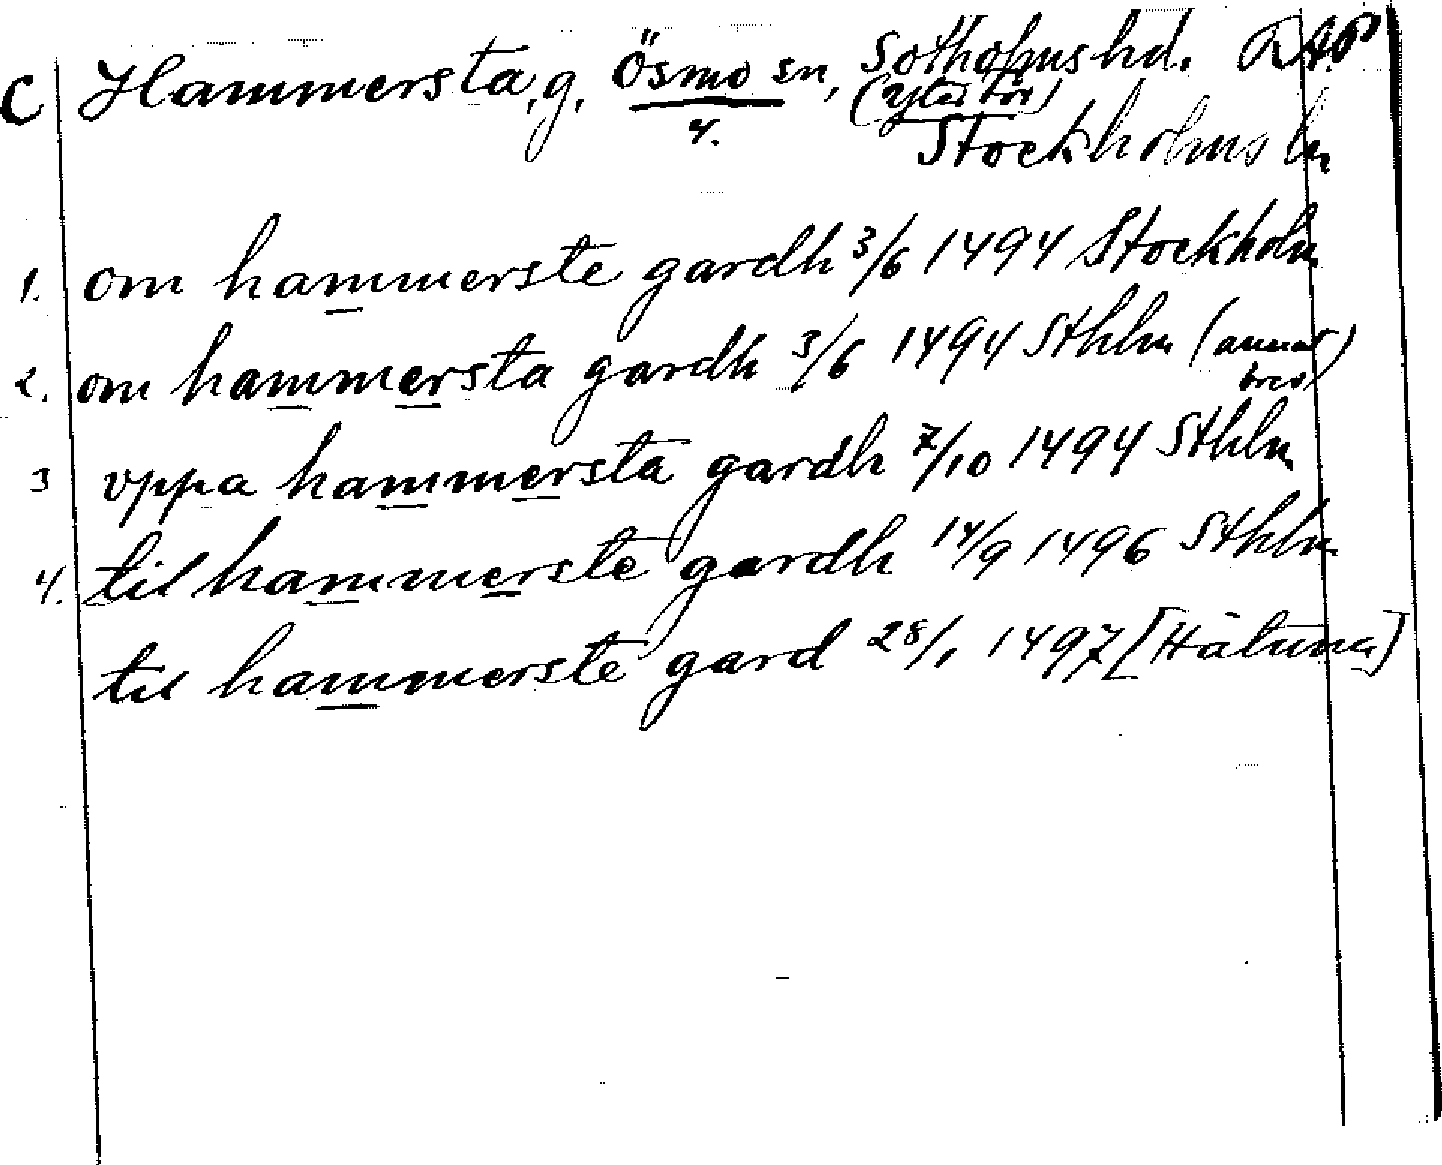 C Hammersta, g. Ösmo sn, Sotholms hd.
4. (Ytter Tör)
Stockholms ln
1. om hammerste gardh 3/6 1494 Stockholm
2. om hammersta gardh 3/6 1494 Sthlm (annat
brev)
3 vppa hammersta gardh 7/10 1494 Sthlm
4. til hammerste gardh 14/9 1496 Sthlm
til hammerste gard 28/1 1497 [Hätuna]